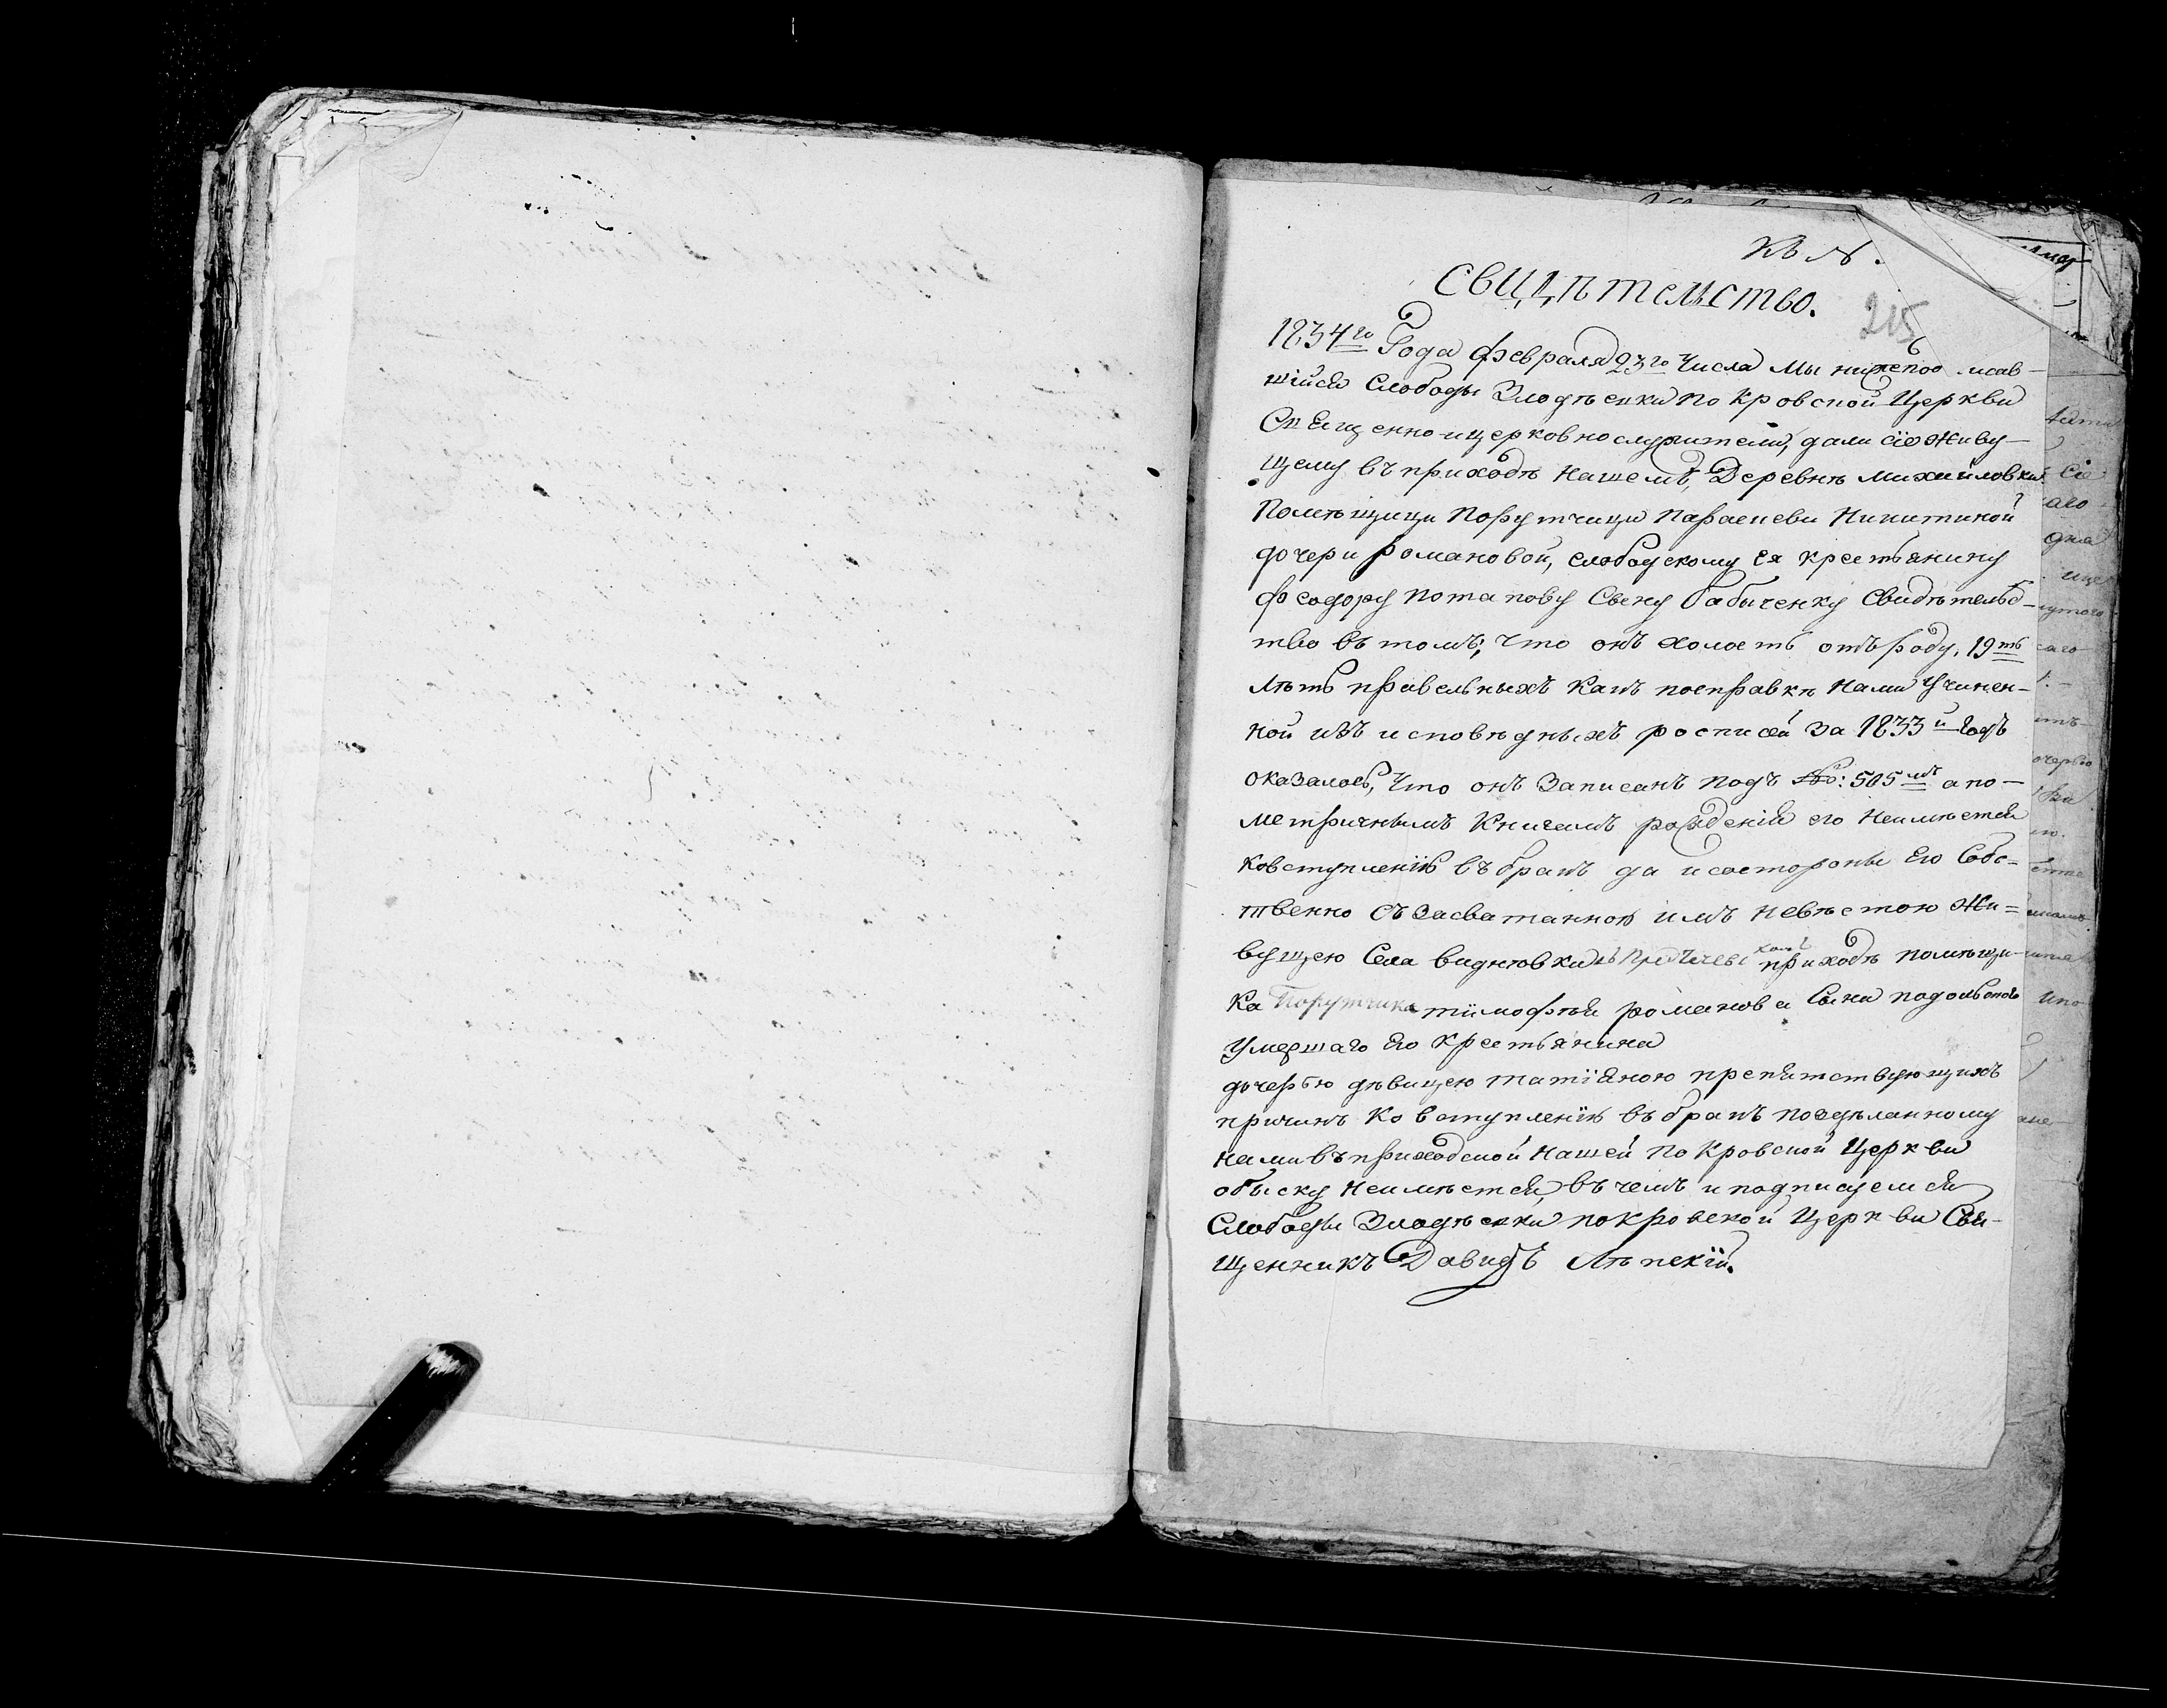 Къ №.
Свидѣтельство.
215
1834го Года февраля 23го Числа Мы нижепод исав-
шійся Слободы Злодѣевки Покровской Церкви
Священно и церковнослужители, дали сіе Живу-
щему въ приходѣ нашемъ, Деревнѣ Михайловки
Помѣщици Порутчици Параскеви Никитиной
дочери Романовой, слободскому ея крестьянину
Феодору Потапову Сыну Бабиченку Свидѣтельс-
тво въ томъ, что онъ холостъ отъ роду, 19ть
лѣтъ правельныхъ какъ посправки Нами Учинен-
ной изъ исповѣдныхъ росписей За 1833й годъ
оказалось, Что онъ Записанъ подъ №: 505мъ а по-
метричнымъ Книгамъ рожденія его Неимѣется
ковступленію въ бракъ да и состороны Его Собс-
твенно съ Засватанною имъ Невѣстою Жи-
вущею Села видновки приходѣ помѣщи-
ка Порутчика тимофѣя романова Сына
Умершаго Его Крестьянина
дочерью дѣвицею татіяною препятствующихъ
причинъ Ко вступленію въ бракъ по сдѣланному
нами въ приходской Нашей Покровской Церкви
обыску Неимѣется, въ чемъ и подписуемся
Слободы Злодѣевки покровской Церкви Свя-
щенникъ Давидъ Лѣпскій.